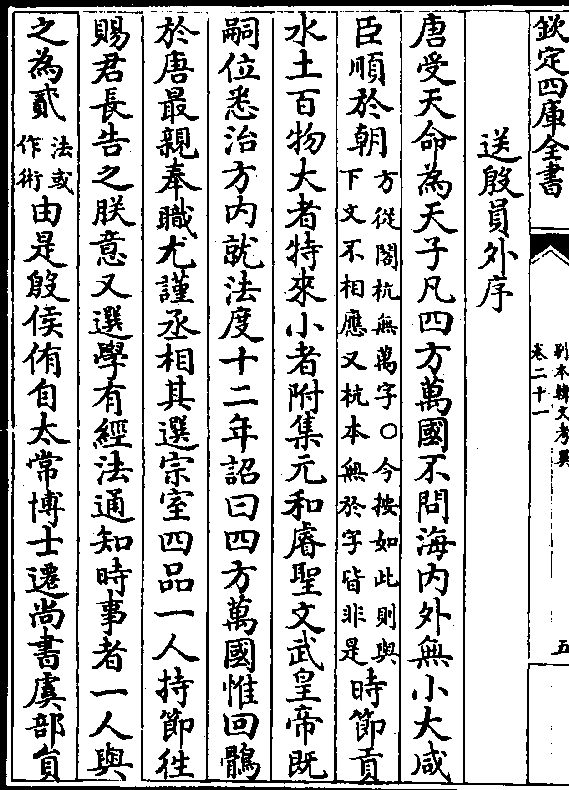 欽定四庫全書
别本韓文考異
卷二十一
五
送殷員外序
唐受天命為天子凡四方萬國不問海内外無小大咸
臣順於朝方從閣杭無萬字○今按如此則與下文不相應又杭本無於字皆非是時節貢
水土百物大者特來小者附集元和睿聖文武皇帝既
嗣位悉治方内就法度十二年詔曰四方萬國惟回鶻
於唐最親奉職尤謹丞相其選宗室四品一人持節往
賜君長告之朕意又選學有經法通知時事者一人與
之為貳法或作術由是殷侯侑自太常博士遷尚書虞部員